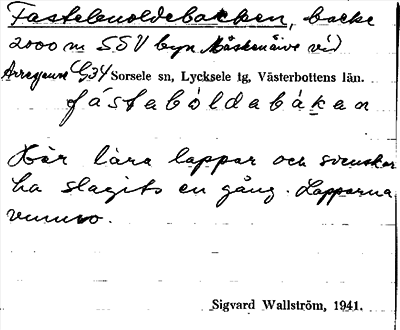 Fastebuoldebacken, backe
2000 m SSV byn Måskenäive vid
Arrejaure G34 Sorsele sn, Lycksele tg, Västerbottens län.
fástabòldabákan
Här lära lappar och svenskar
ha slagits en gång. Lapparna
vunno.
Sigvard Wallström, 1941.